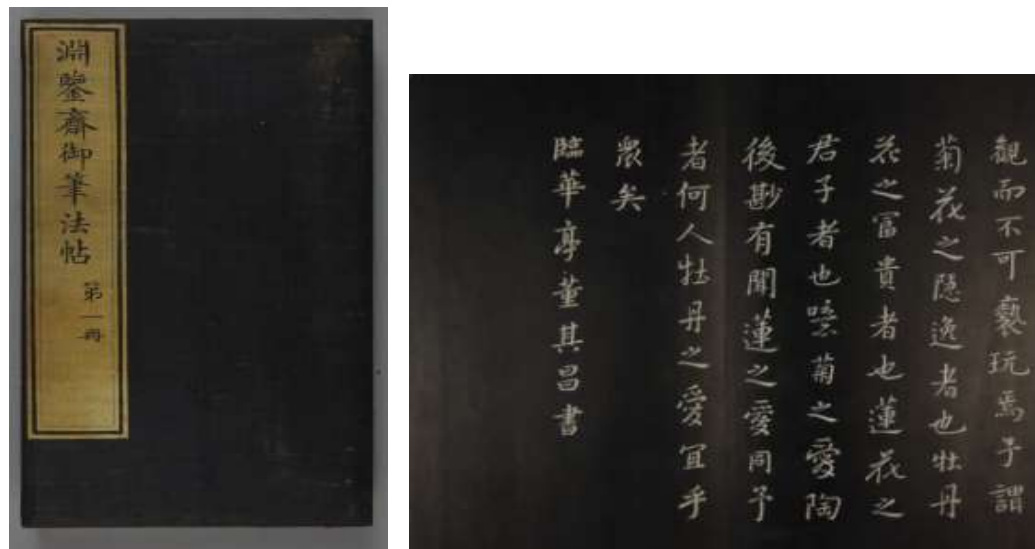 淵鑒齋御筆法帖
第一冊
觀而不可褻玩焉予謂
菊花之隱逸者也牡丹
花之富貴者也蓮花之
君子者也噫菊之愛陶
後尠有聞蓮之愛同予
者何人牡丹之愛宜乎
衆矣
臨華亭董其昌書